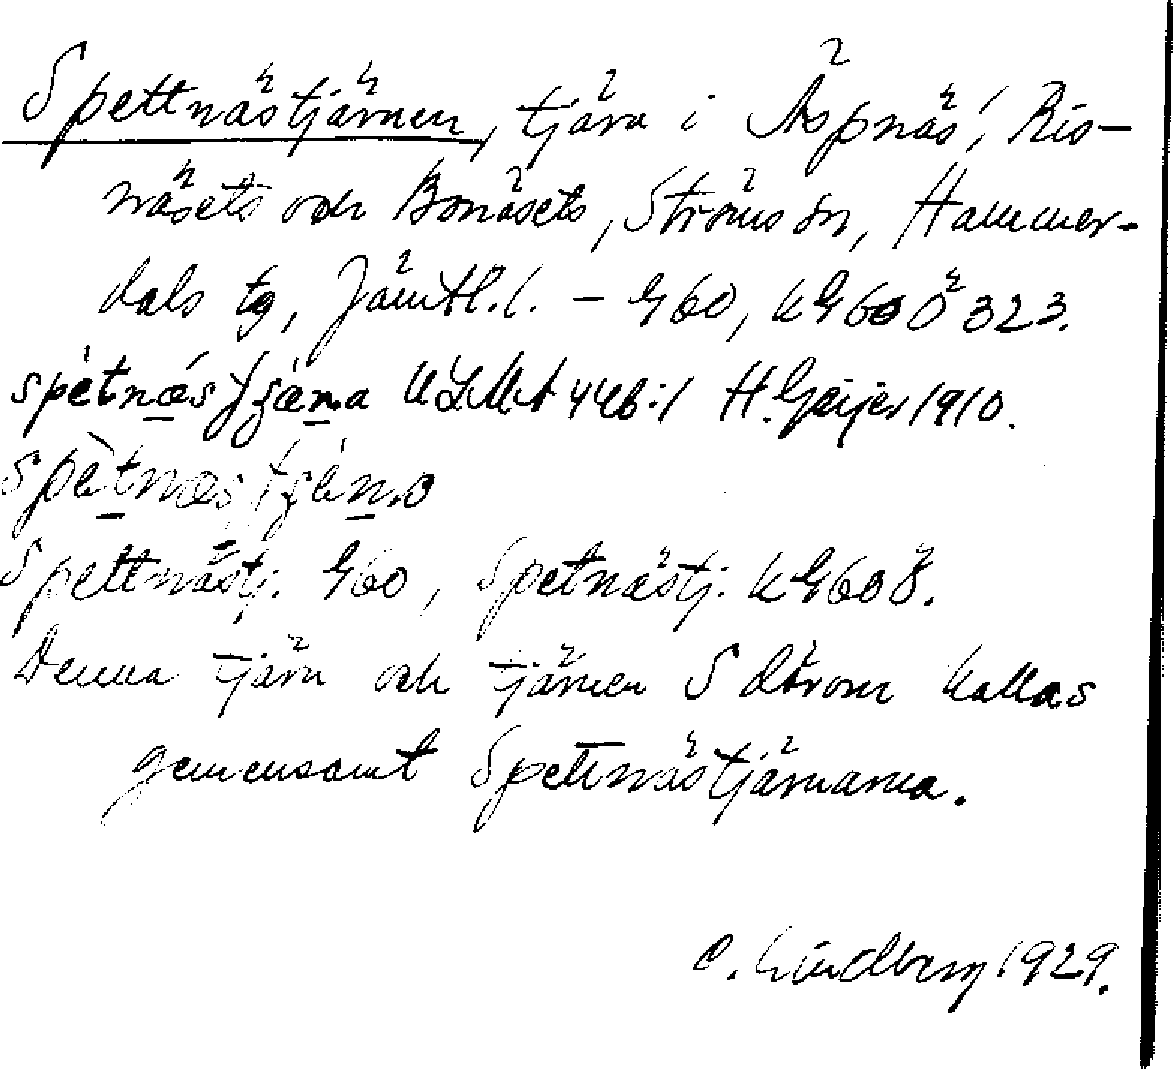 Spettnästjärnen, tjärn i Äspnäs', Ris-
näsets och Bonäsets, Ströms sn, Hammer-
dals tg, Jämtl. l. – G60, KG60 Ö 323.
spètnǽs tjæna ULMA 446:1 H. Geijer 1910.
spètnæs
Spettnästj. G60, Spetnästj. KG60Ö.
Denna tjärn och tjärnen S därom kallas
gemensamt Spettnästjärnarna.
C. Lindberg 1929.